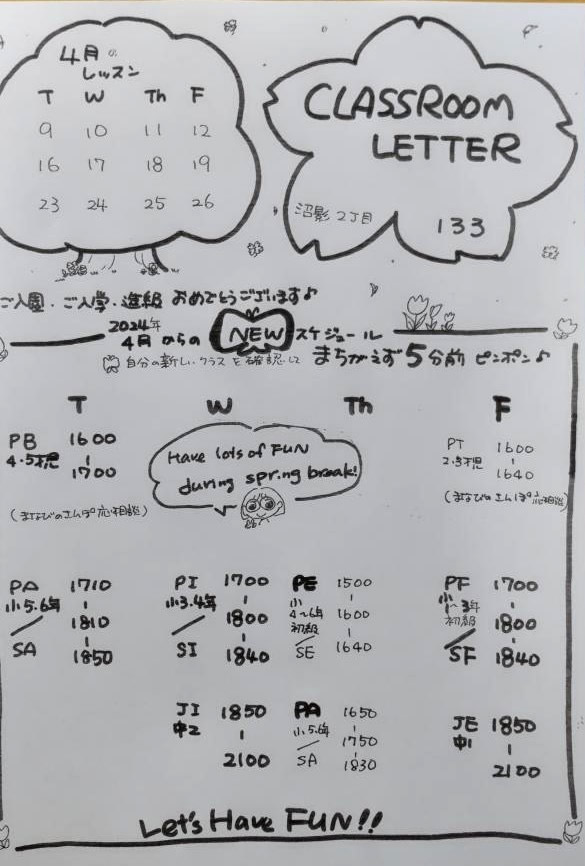 4月の
レッスン
T W Th F
9 10 11 12
16 17 18 19
23 24 25 26
CLASSROOM
LETTER
沼影2丁目 133
ご入園・ご入学・進級 おめでとうございます♪
2024年
4月 からの NEW スケジュール
自分の新しいクラスを確認して まちがえず5分前 ピンポン♪
T W Th F
PB 1600
4・5才児 |
1700
(まなびのさんぽ応相談)
Have lots of FUN
during spring break!
PT 1600
2・3才児 |
1640
(まなびのさんぽ応相談)
PA 1710
小5.6年 |
1810
|
SA 1850
PI 1700
小3.4年 |
1800
|
SI 1840
PE 1500
小 |
4~6年 1600
初級 |
SE 1640
PF 1700
小 |
1~3年 1800
初級 |
SF 1840
JI 1850
中2 |
2100
PA 1650
小5.6年 |
1750
|
SA 1830
JE 1850
中1 |
2100
Let's Have FUN!!